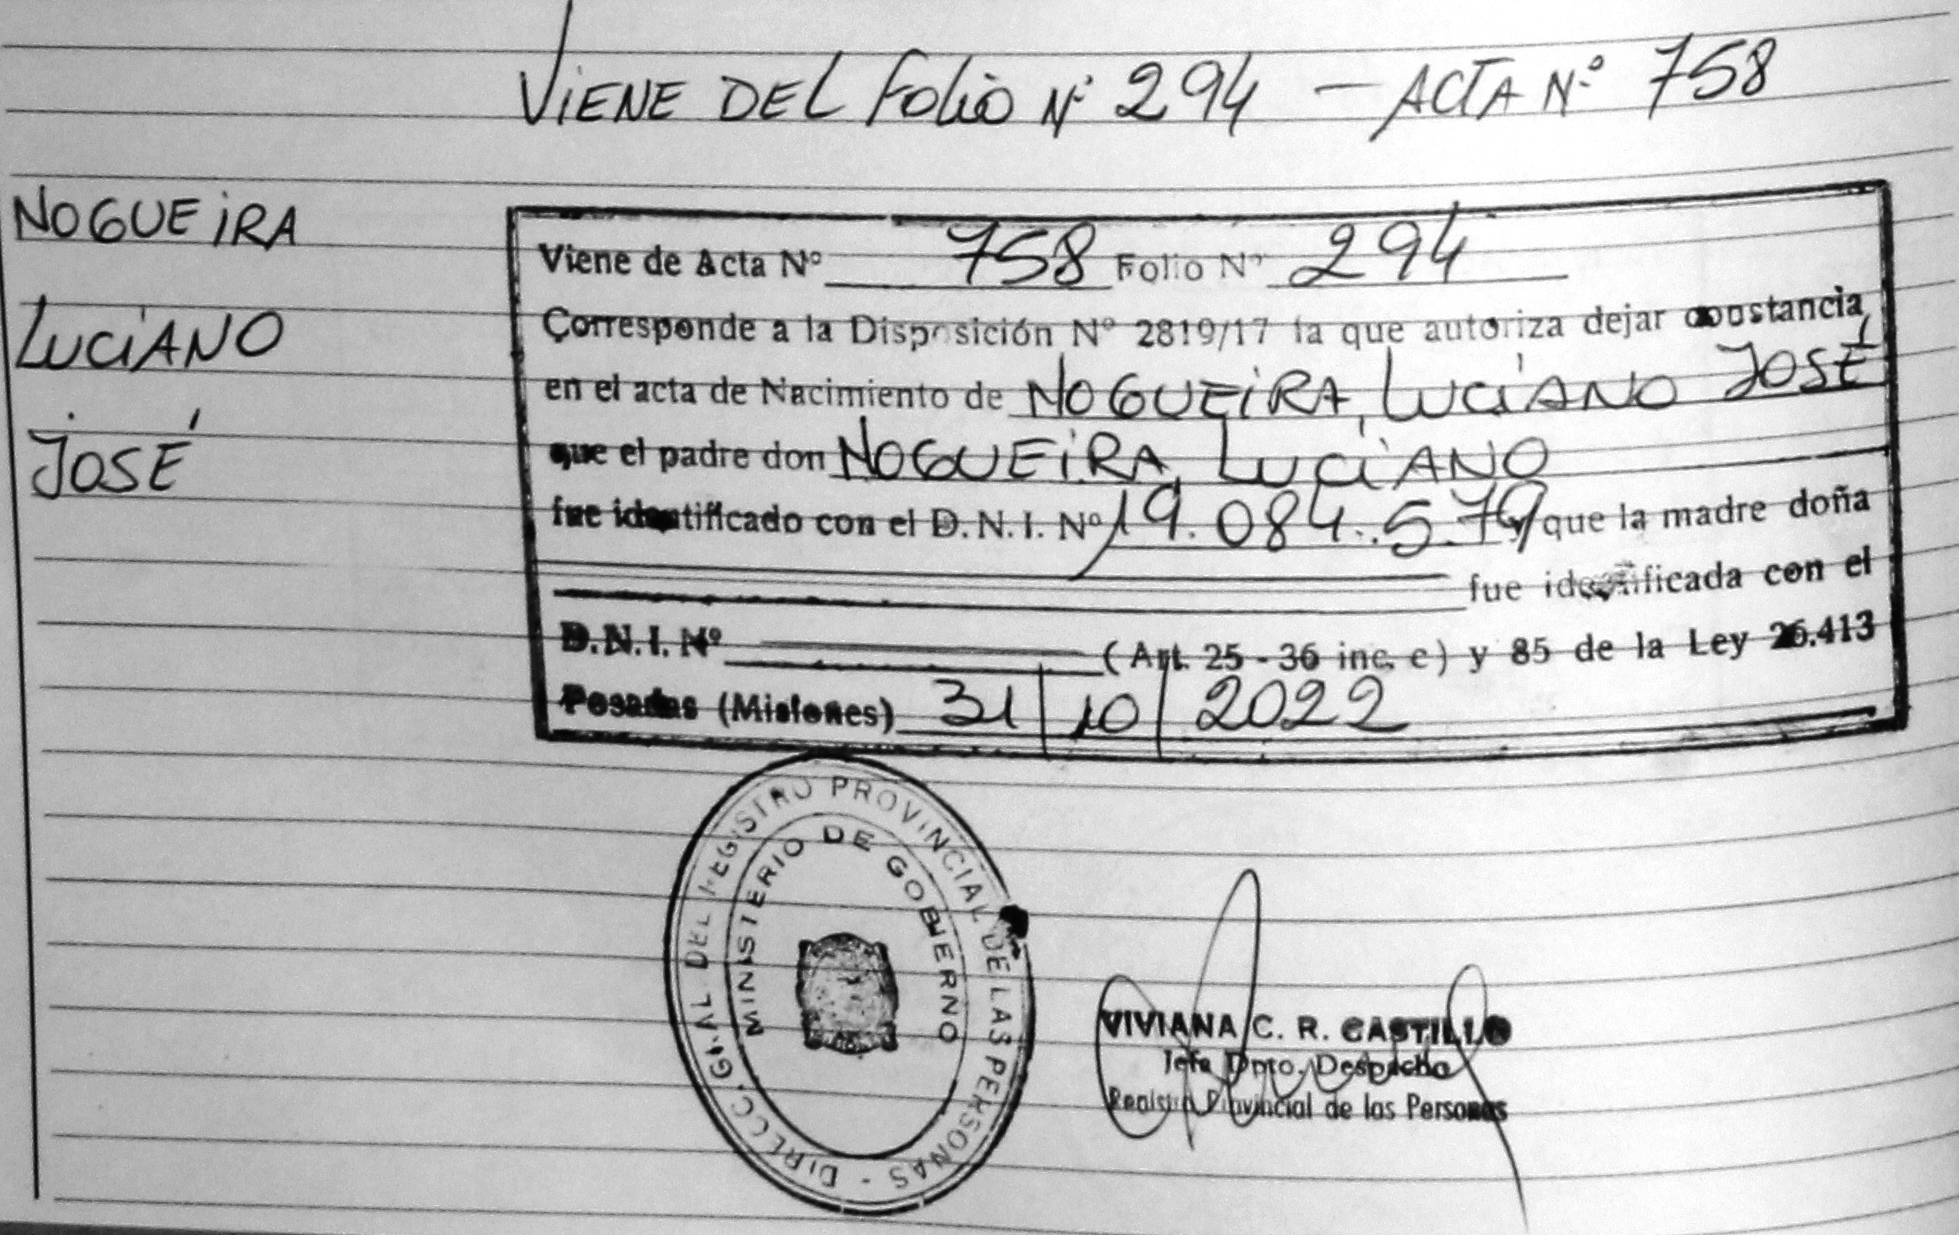 VIENE DEL FOLIO Nº 294 — ACTA Nº 758
NOGUEIRA
LUCIANO
JOSÉ
Viene de Acta Nº 758 Folio Nº 294
Corresponde a la Disposición Nº 2819/17 la que autoriza dejar constancia
en el acta de Nacimiento de NOGUEIRA, LUCIANO JOSÉ
que el padre don NOGUEIRA, LUCIANO
fue identificado con el D.N.I. Nº 19.084.579 y que la madre doña
fue identificada con el
D.N.I. Nº ( Art. 25 - 36 inc. c) y 85 de la Ley 26.413
Posadas (Misiones) 31/10/2022
DIRECC. GRAL DEL REGISTRO PROVINCIAL DE LAS PERSONAS -
MINISTERIO DE GOBIERNO
VIVIANA C. R. CASTILLO
Jefa Dpto. Despacho
Registro Provincial de las Personas